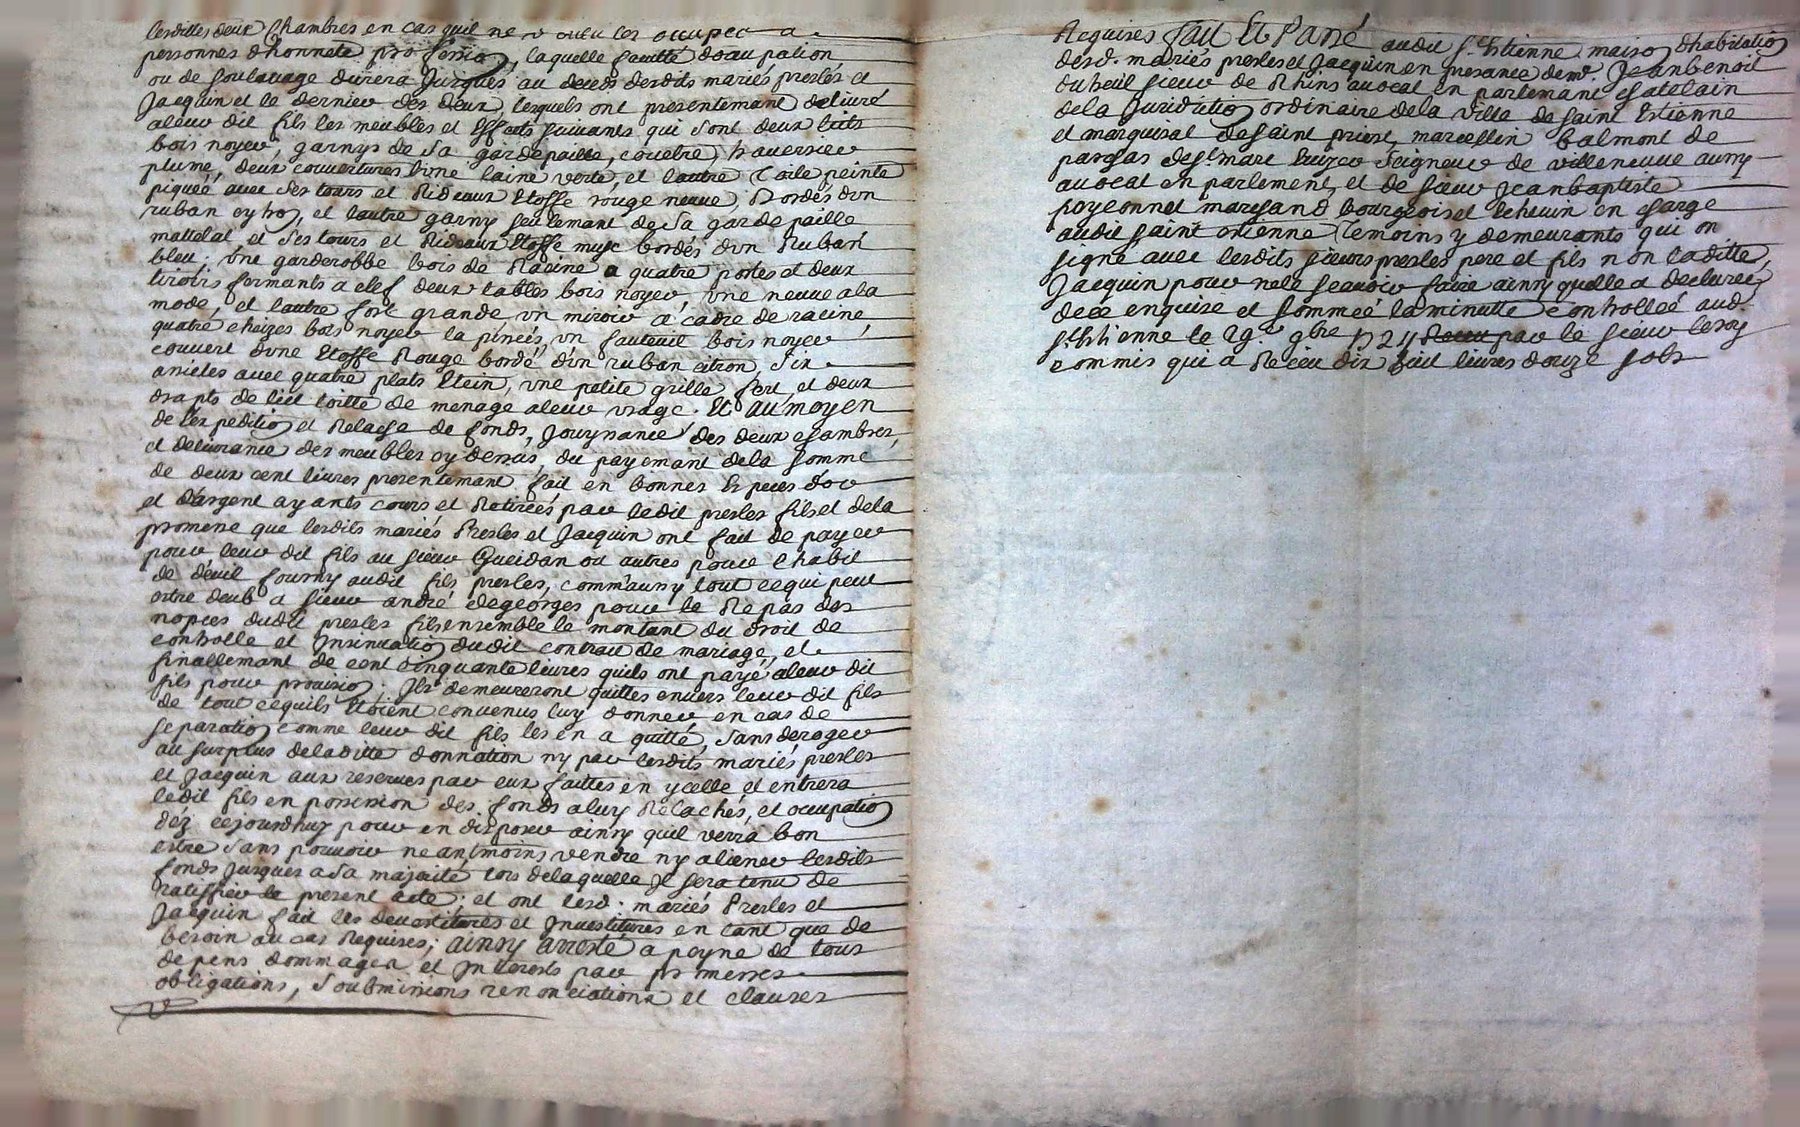 lesdittes deux Chambres en cas quil ne voulu les occuper a
personnes dhonnete professio, laquelle faculté docupation
ou de soulouage durera Jusques au deceds desdits mariés presles et
Jacquin et le dernier des deux, lesquels ont presentemant delivré
aleur dit fils les meubles et Effaits suivants qui sont deux lits
bois noyer, garnys de sa gardepaille, couetre, traversier
plume, deux couvertures L'une laine verte, et lautre toile peinte
piquée avec ses tours et Rideaux Etoffe rouge neuve, Bordés d'un
ruban cytro, et lautre garny seulemant de sa garde paille
mattelat et ses tours et Rideaux Etoffe musc bordés d'un Ruban
bleu. Une garderobbe bois de Racine a quatre portes et deux
tiroirs fermants a clef deux tables bois noyer, une neuve ala
mode, et lautre fort grande un miroir a cadre de racine,
quatre cheizes bois noyer la pincés, un fauteuil bois noyer
couvert d'une Etoffe Rouge bordé d'un ruban citron, Six
assietes avec quatre plats Etein, une petite grille fert, et deux
drapts de lict toille de menage aleur usage. Et au moyen
de lexpeditio et Relache de fonds, Jouyssance des deux chambres,
et delivrance des meubles cy dessus, du payemant dela somme
de deux cent livres presentemant fait en bonnes Especes d'or
et d'argent ayants cours et Retirées par ledit presles fils et dela
promesse que lesdits mariés Presles et Jacquin ont fait de payer
pour leur dit fils au sieur Gueidan ou autres pour l'habit
de deuil fourny audit fils presles, comm'aussy tout cequi peut
estre deub a sieur andré degeorges pour le Repas des
nopces dudit presles fils ensemble le montant du droit de
controlle et Insinuatio dudit contrat de mariage, et
finallemant de cent cinquante livres quils ont payé aleur dit
fils pour provisio. Ils demeureront quittes envers leur dit fils
de tout cequils Etoient convenus luy donner en cas de
separatio comme leur dit fils les en a quitté, Sans deroger
au surplus deladitte donnation ny par lesdits mariés presles
et Jacquin aux reserves par eux faittes en ycelle et entrera
ledit fils en possession des fonds aluy Relachés, et occupatio
dez cejourdhuy pour en disposer ainsy quil verra bon
estre Sans pouvoir neantmoins vendre ny aliener lesdits
fonds jusques a sa majorité lors delaquelle Il sera tenu de
ratiffier le present acte; et ont lesd. mariés Presles et
Jacquin fait les devestitures et Investitures en tant que de
besoin au cas Requises; ainsy arresté a peyne de tous
depens dommages et Interests par promesses
obligations, Soubmissions renonciations et clauses
Requises fait Et Passé audit St. Etienne maiso dhabitatio
desd. mariés presles et Jacquin en presance de mr. Jean benoit
duheil sieur de Rhins avocat en parlemant chatelain
dela Juridictio ordinaire dela ville de saint Etienne
et marquisat de saint priest, marcellin balmont de
parchas de St. marc Seigneur de villeneuve aussy
avocat en parlement, et de sieur Jean baptiste
poyeonnet marchand bourgeois et Echevin en charge
audit saint etienne temoins y demeurants qui on
signé avec lesdits sieurs presles pere et fils non laditte
Jacquin pour nele scauoir faire ainsy quelle a declarée
dece enquise et sommée la minutte controlleé aud.
St. Etienne le 29e. 9bre 1724 par le sieur leroy
commis qui a Receu dix huit livres douze sols